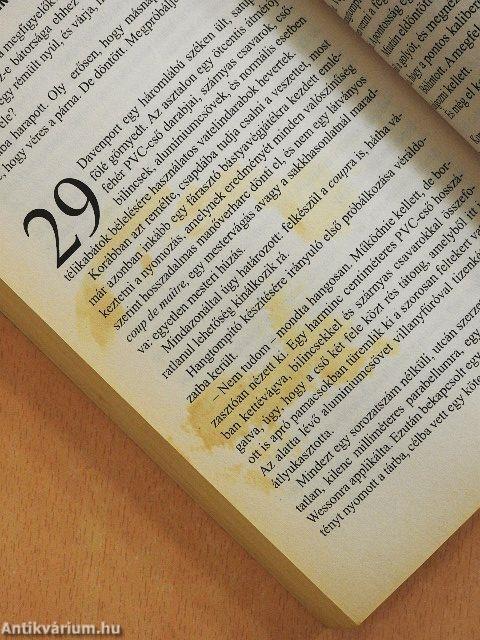 a megfigyelők
z-e bátorsága ehhez
egy rémült nyúl, és várja, ho
ele"
ba harapott. Oly erősen, hogy másna
, hogy véres a párna. De döntött. Megpróbálja
29
Davenport egy háromlábú széken ült,
fölé görnyedt. Az asztalon egy ötcentis átmérőjű
fehér PVC-cső darabjai, szárnyas csavarok, cső-
bilincsek, alumíniumcsövek, és normális esetben
télikabátok bélelésére használatos vatelindarabok hevertek.
Korábban azt remélte, csapdába tudja csalni a veszettet, most
már azonban inkább egy fárasztó vásnyavégjátékra kezdett emlé-
keztetni a nyomozás, amelynek eredményét minden valószínűség
szerint hosszadalmas manőverharc dönti el, és nem egy látványos
coup de maître, egy mestervágás avagy a sakkhasonlatnál marad-
va: egyetlen mesteri húzás.
Mindazonáltal úgy határozott: felkészül a coupra is, hátha vá-
ratlanul lehetőség kínálkozik rá.
Hangtompító készítésére irányuló első próbálkozása véraldo-
zatba került.
– Nem tudom – mondta hangosan. Működnie kellett, de bor-
zasztóan nézett ki. Egy harminc centiméteres PVC-cső hosszá-
ban kettévágva, bilincsekkel és szárnyas csavarokkal összefo-
gatva, úgy, hogy a cső két fele közt rés tátong, amelyből itt
ott is apró pamacsokban türemlik ki a szorosan feltekert va
Az alatta lévő alumíniumcsövet villanyfúróval tizenké
átlyukasztotta.
Mindezt egy sorozatszám nélküli, utcán szerze
tatlan, kilenc milliméteres parabellumra, egy
Wessonra applikálta. Ezután bekapcsolt egy
tényt nyomott a tárba, célba vett egy köte
hogy a pontos kaliben
és még el k
Antikvárium.hu